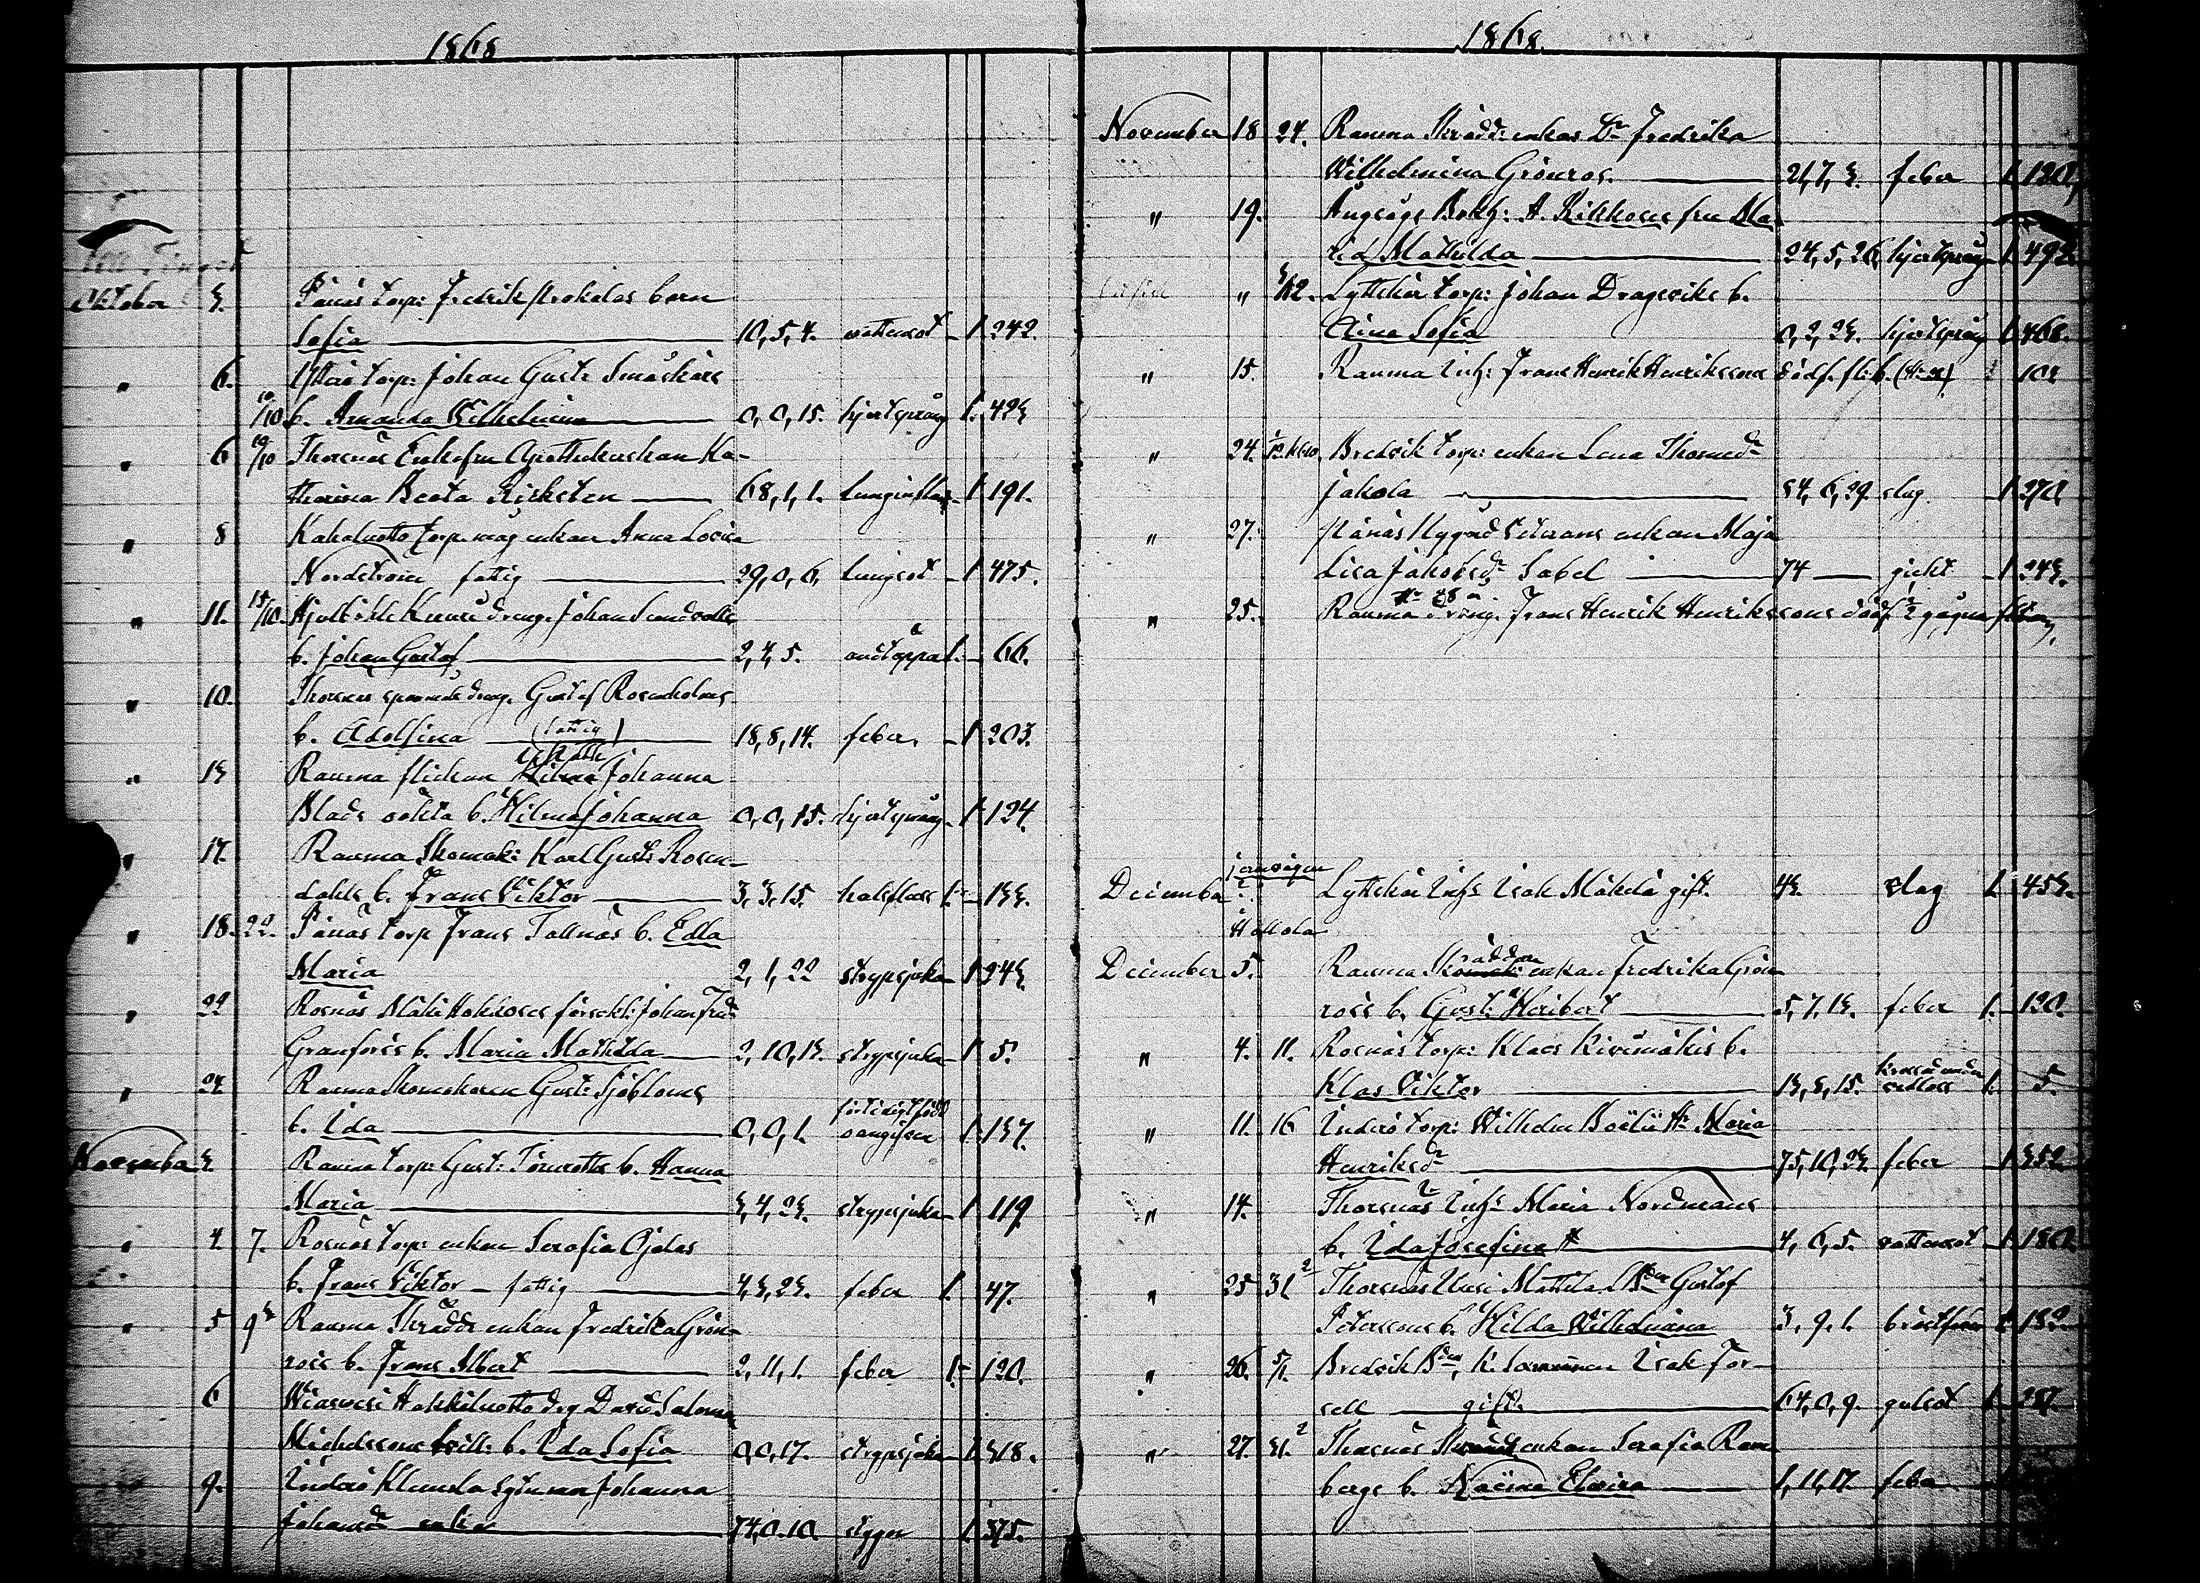 1868
Oktober 3. Pänäs torp: Fredrik Prokolas barn
Sofia 10, 5, 4. vattusot 1. 242.
" 6. Ytterö torp: Johan Gust: Småskärs
10/10 b. Amanda Wilhelmina 0, 0, 15. hjertsprång 1. 423
" 6 10/10 Thorsnäs Enkefru Apothekerskan Ka-
tharina Beata Kjrksten 68, 1, 1. lunginflam. 1. 191.
" 8 Kahaluotto torp. måg enkan Anna Lovisa
Nordström fattig 29, 0, 6, lungsot 1. 475.
" 11. 15/10. Hjulböhle dreng. Johan Sandvalls
b. Johan Gustaf 2, 4, 5. andtäppa 1. 66.
" 10. Thorsnäs dreng. Gustaf Rosenholms
b. Adolfina (fattig) 18, 8, 14. feber. 1. 203.
" 13 Rauma flickan Johanna
Blads oäkta b. Hilma Johanna 0, 0, 15. hjertsprång 1. 124.
" 17. Rauma Skomak: Karl Gust: Rosen-
dahls b. Frans Viktor 3, 3, 15. halsfluss 1. 133.
" 18. 22. Pänäs torp Frans Tallnäs b. Edla
Maria 2, 1, 22 strypsjuka 1. 243.
" 22 Rosnäs Mäki Hokkosis Johan Fred:
Granforss b. Maria Mathilda 2, 10, 13. strypsjuka 1. 5.
" 24. Rauma Skomakaren Gust: Sjöbloms
b. Ida 0, 0, 1. förtidigt född oangifven 1. 137.
November 3. Rauma torp: Gust: Törnroths b. Hanna
Maria 3, 4, 23. strypsjuka 1. 119
" 4. 7. Rosnäs torp: enkan Serafia Ojalas
b. Frans Viktor – fattig 4, 3, 23. feber 1. 47.
" 5 9 Rauma Skrädd: enkan Fredrika Grön-
roos b. Frans Albert 2, 11, 1. feber 1. 120.
6 Wiasvesi Hakkiluotto drg David Salomon
Michelssons b. Ida Sofia 0, 0, 17. strypsjuka 1. 318.
9. Inderö Klemela Johanna
Johansdr enka 74, 0. 10. styger 1. 375.
1868.
November 18 24. Rauma Skrädd: enkas Dr Fredrika
Wilhelmina Grönros. 21, 7, 3. feber 1. 120,
" 19. Ångsågs Bokh: A. Kikkosis fru Ma-
ria Mathilda 24, 5, 26, hjertsprång 1. 492.
" 3/12. Lyttskär torp: Johan Dragsviks b.
Aina Sofia 0, 2, 23. hjertsprång 1. 468.
" 15. Rauma Inh: Frans Henrik Henrikssons dödf. fl: b. 1 101
" 24. Bredvik torp: enkan Lena Thomasdr
Jakola 84, 6, 29. slag 1. 270
" 27. Pänäs Nygård enkan Maja
Lisa Jakobsdr Sabel 74 gickt 1. 243.
" 25. Rauma dräng. Frans Henrik Henrikssons dödf
December Lyttskär Inhs Isak Mäkelä gift. 43. slag 1. 453.
December 5. Rauma Skräddar enkan Fredrika Grön-
roos b. Gust: Heribert 5, 7, 13. feber 1. 120.
" 4. 11. Rosnäs torp: Klaes Kivimäkis b.
Klas Viktor 13, 3, 15. 1. 5.
" 11. 16 Inderö torp: Wilhelm Hr Maria
Henriksdr 75, 10, 23. feber 1. 352.
" 14. Thorsnäs Inhs Maria Nordmans
b. Ida Josefina 4, 6, 5. vattusot 1. 180.
" 25 31 Thorsnäs Uusi Mattila Bdn Gustaf
Peterssons b. Hilda Wilhelmina 3, 9, 1. bröstfeber 1. 182.
" 26. 5/1. Bredvik Bdn, Isak For-
sell gift. 64, 0, 9. gulsot 1. 257.
" 27. 31. Thorsnäs enkan Serafia Ram-
bergs b. Naëma Elvira 1, 11, 17. feber